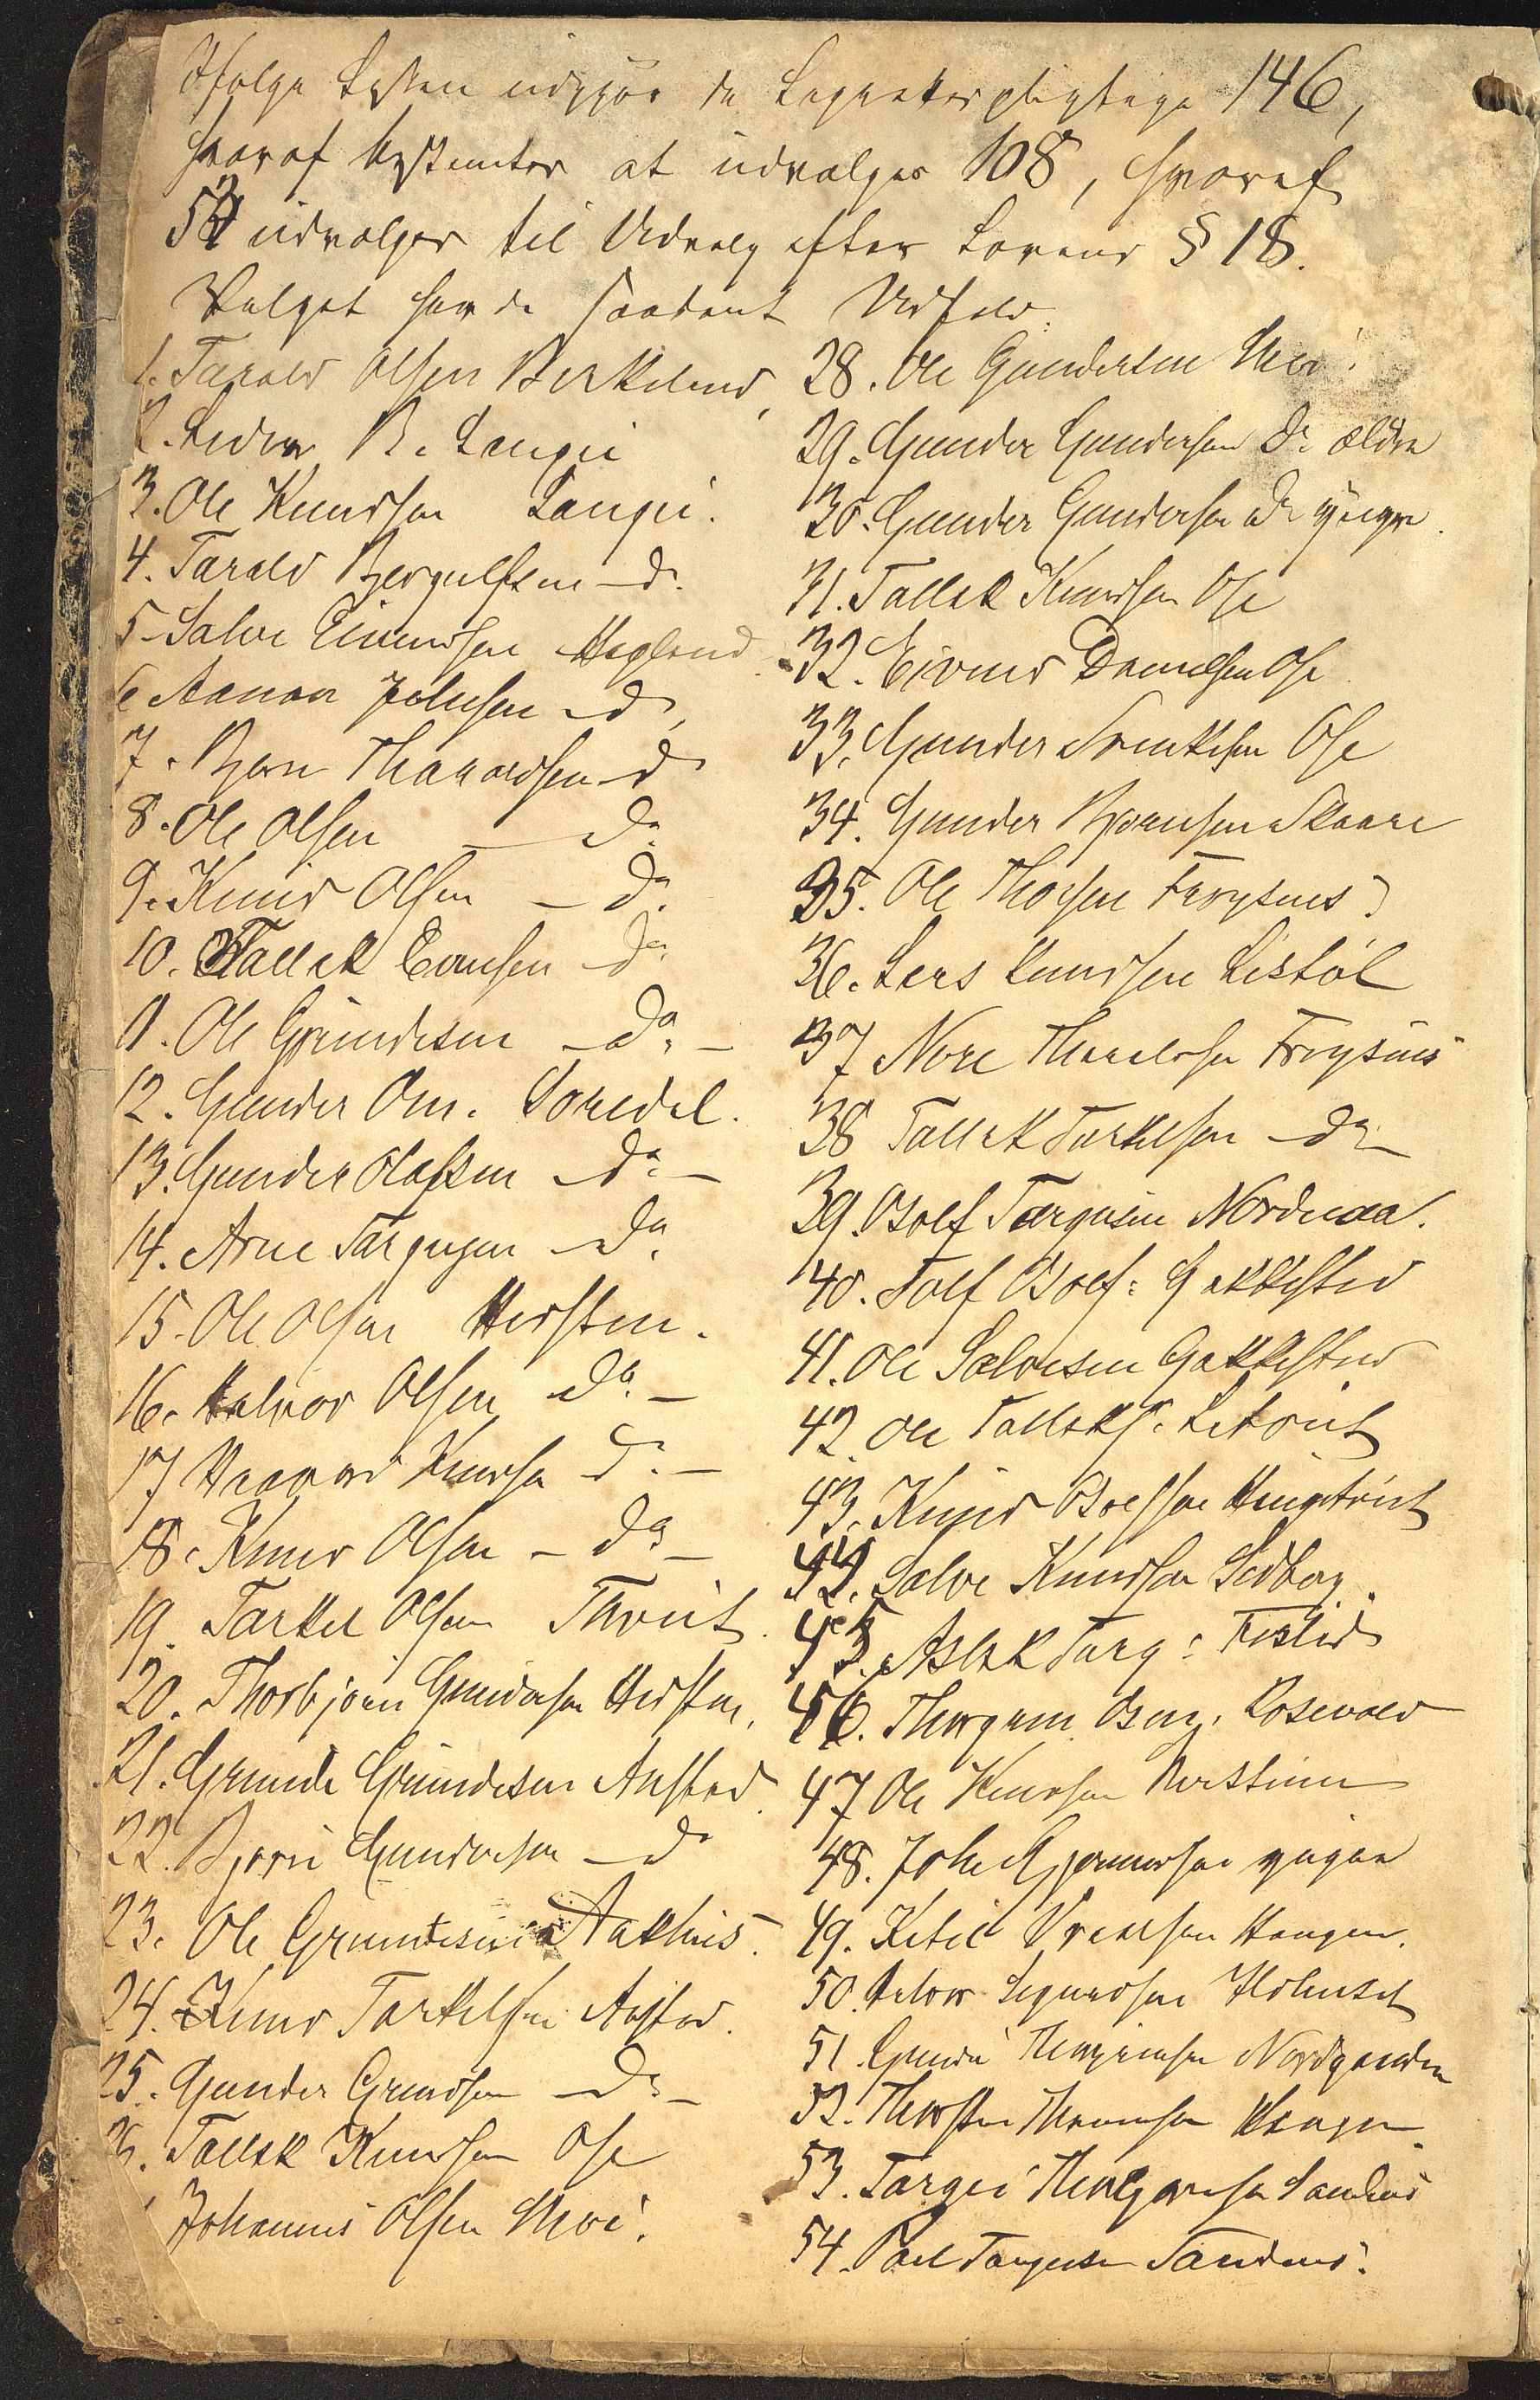 Ifølge Listen udgjør de Lagrettespligtige 146,
hvoraf bestemtes at udvælges 108, hvoraf
54 udvælges til Udvalg efter Lovens § 18.
Valget havde saadant Udfald:
1. Tarald Olsen Birkeland,
2. B. Langei
3. Ole Knudsen Langei.
4. Tarald Bergulfsen do
5 Salve Eivindsen Hegland
6 Aanon Johnsen do,
7. Bjørn Haavardsen do
8. Ole Olsen do
9. Knud Olsen do.
10. Tallak Evensen do
11. Ole Grundesen do.
12. Gunder Om.
13. Gunder Olafsen do.
14. Arne Targusen do.
15. Ole Olsen Heisten.
16. Halvor Olsen do.
17 Haavard Knudsen do.
18. Knud Olsen do
19. Tarkel Olsen Tveit.
20. Thorbjørn Gundersen Heisten.
21. Grunde Grundesen Austad.
22. Bjørn Gundersen do
23. Ole Grundesen Aakhus.
24. Knud Tarkelsen Austad.
25. Gunder Grundsen do.
26. Tallak Knudsen Ose
Johannes Olsen Moi.
28. Ole Gundersen Moi.
29. Gunder Gundersen do ældre
30. Gunder Gundersen do yngre.
31. Tallak Knudsen Ose
32. Eivind Danielsen Ose
33. Gunder Svenkesen Ose
34. Gunder Bjørnsen Skaare
35. Ole Thorsen Frøysnes
36. Lars Knudsen Listøl
37 Nore Tharaldsen Frøysnes
38 Tallak Tarkelsen do
39. Osolf Targusen Nordnaa.
40. Tolf Osolfs: Gakkestad
41. Ole Salvesen Gakkestad
42. Ole Tallaks: Letveit
43. Knud Osolfsen
44. Salve Knudsen Sedberg.
45. Aslak Targ:
46. Thorgrim Rosevold
47 Ole Knudsen
48. John Gjermundsen yngre
49. Ketil Haugen.
50. Halvor Sigurdsen Holmset
51. Gunder Thorgrimsen Nordgarden
52. Thorsten Haugen.
53. Targei Thorgrimsen Sandnes
54. Paul Targusen Sandnes.